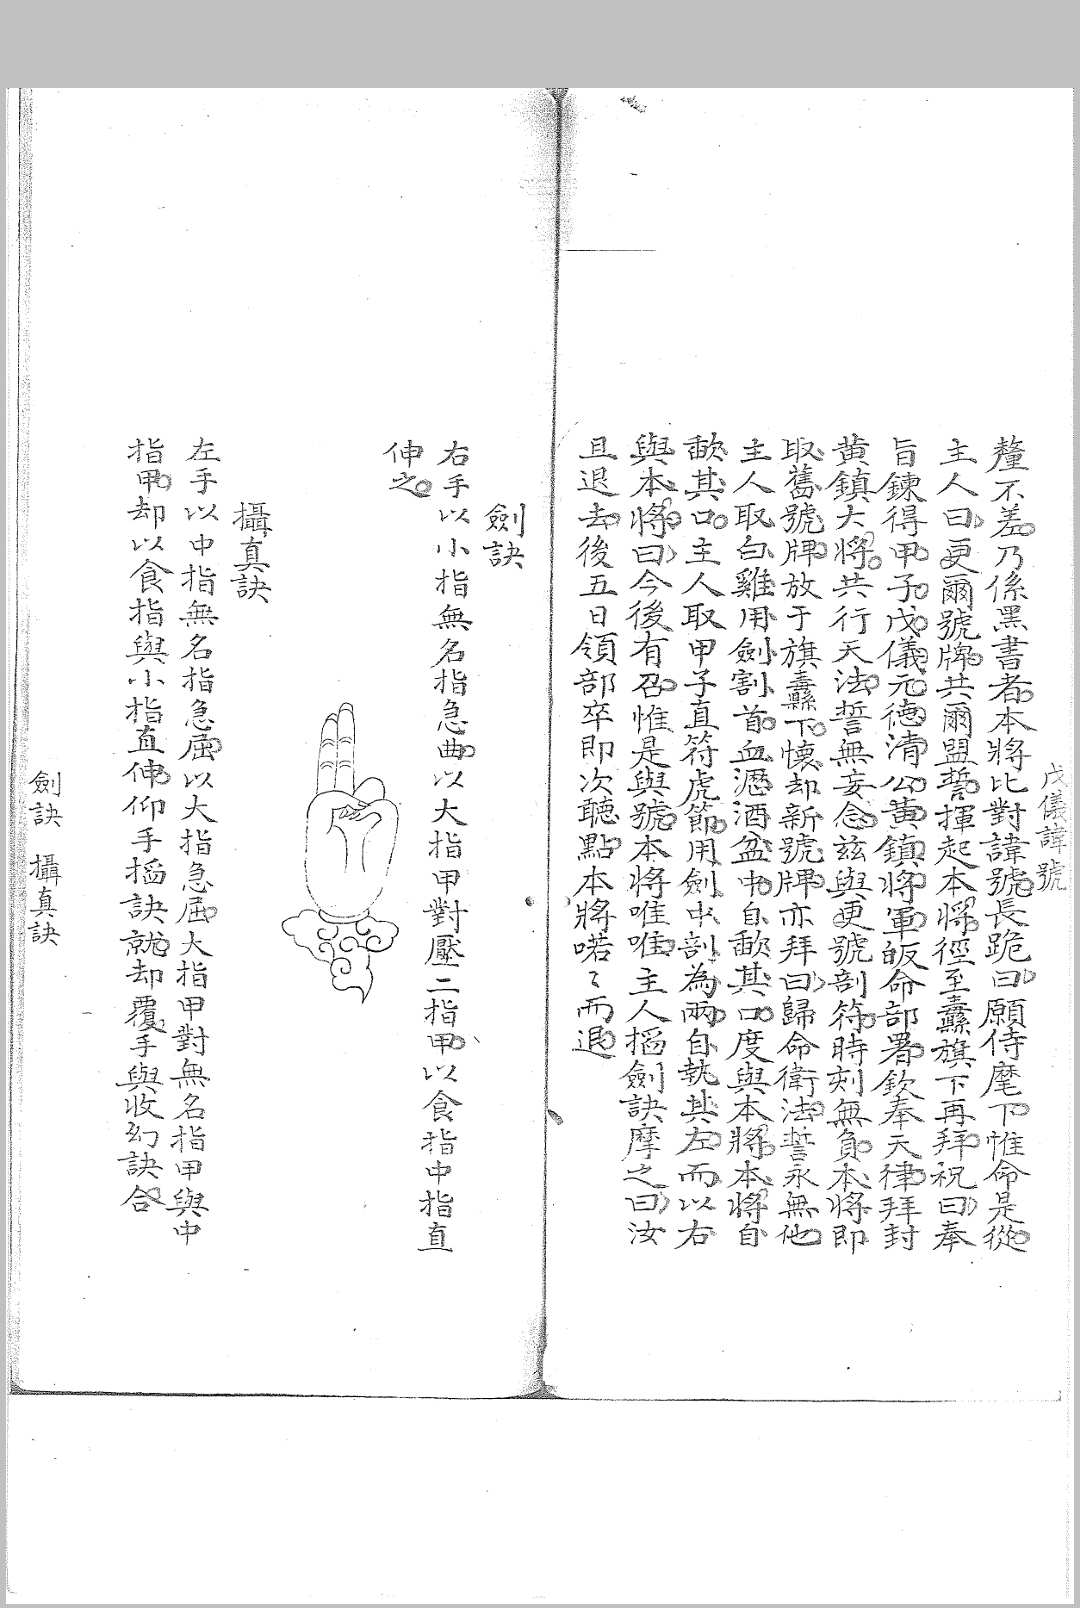 戊儀諱號
釐不差乃係黑書者本將比對諱號長跪曰願侍麾下惟命是從
主人曰更爾號牌共爾盟誓揮起本將徑至纛旗下再拜祝曰奉
旨鍊得甲子戊儀元德清公黄鎮將軍皈命部署欽奉天律拜封
黄鎮大將共行天法誓無妄念兹與更號剖符時刻無負本將即
取舊號牌放于旗纛下懷却新號牌亦拜曰歸命衛法誓永無他
主人取白雞用劍割首血瀝酒盆中自歃其口度與本將本將自
歃其口主人取甲子真符虎節用劍中剖為兩自執其左而以右
與本將曰今後有召惟是與號本將唯唯主人搯劍訣摩之曰汝
且退去後五日領部卒即次聽點本將喏〻而退
劍訣
右手以小指無名指急曲以大指甲對壓二指甲以食指中指直
伸之
攝真訣
左手以中指無名指急屈以大指急屈大指甲對無名指甲與中
指甲却以食指與小指直伸仰手搯訣就却覆手與收幻訣合
劍訣 攝真訣